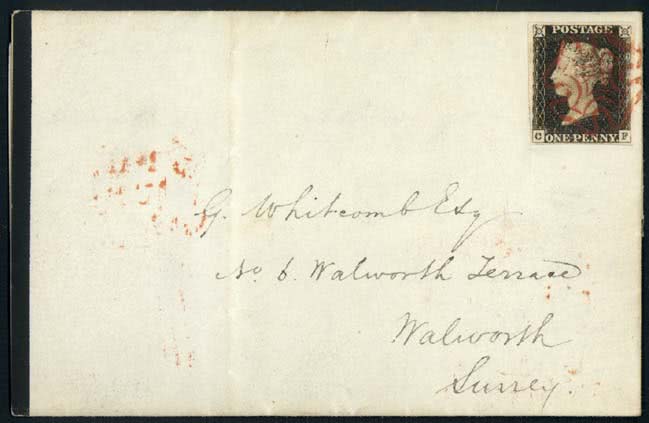 POSTAGE
C F
ONE PENNY.
G. Whitcomb Esq
No. 6. Walworth Terrace
Walworth
Surrey.